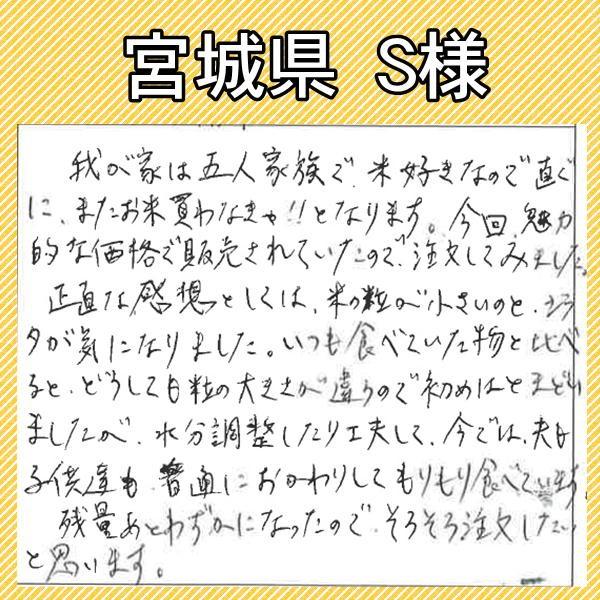 宮城県 S様
我が家は五人家族で、米好きなので直ぐ
に、またお米買わなきゃ!!となります。今回、魅力
的な価格で販売されていたので、注文してみました。
正直な感想としては、米の粒が小さいのと、
タが気になりました。いつも食べていた物と比べ
ると、どうしても粒の大きさが違うので初めはとまどい
ましたが、水分調整したり工夫して、今では、夫も
子供達も普通におかわりしてもりもり食べています。
残量あとわずかになったので、そろそろ注文したい
と思います。